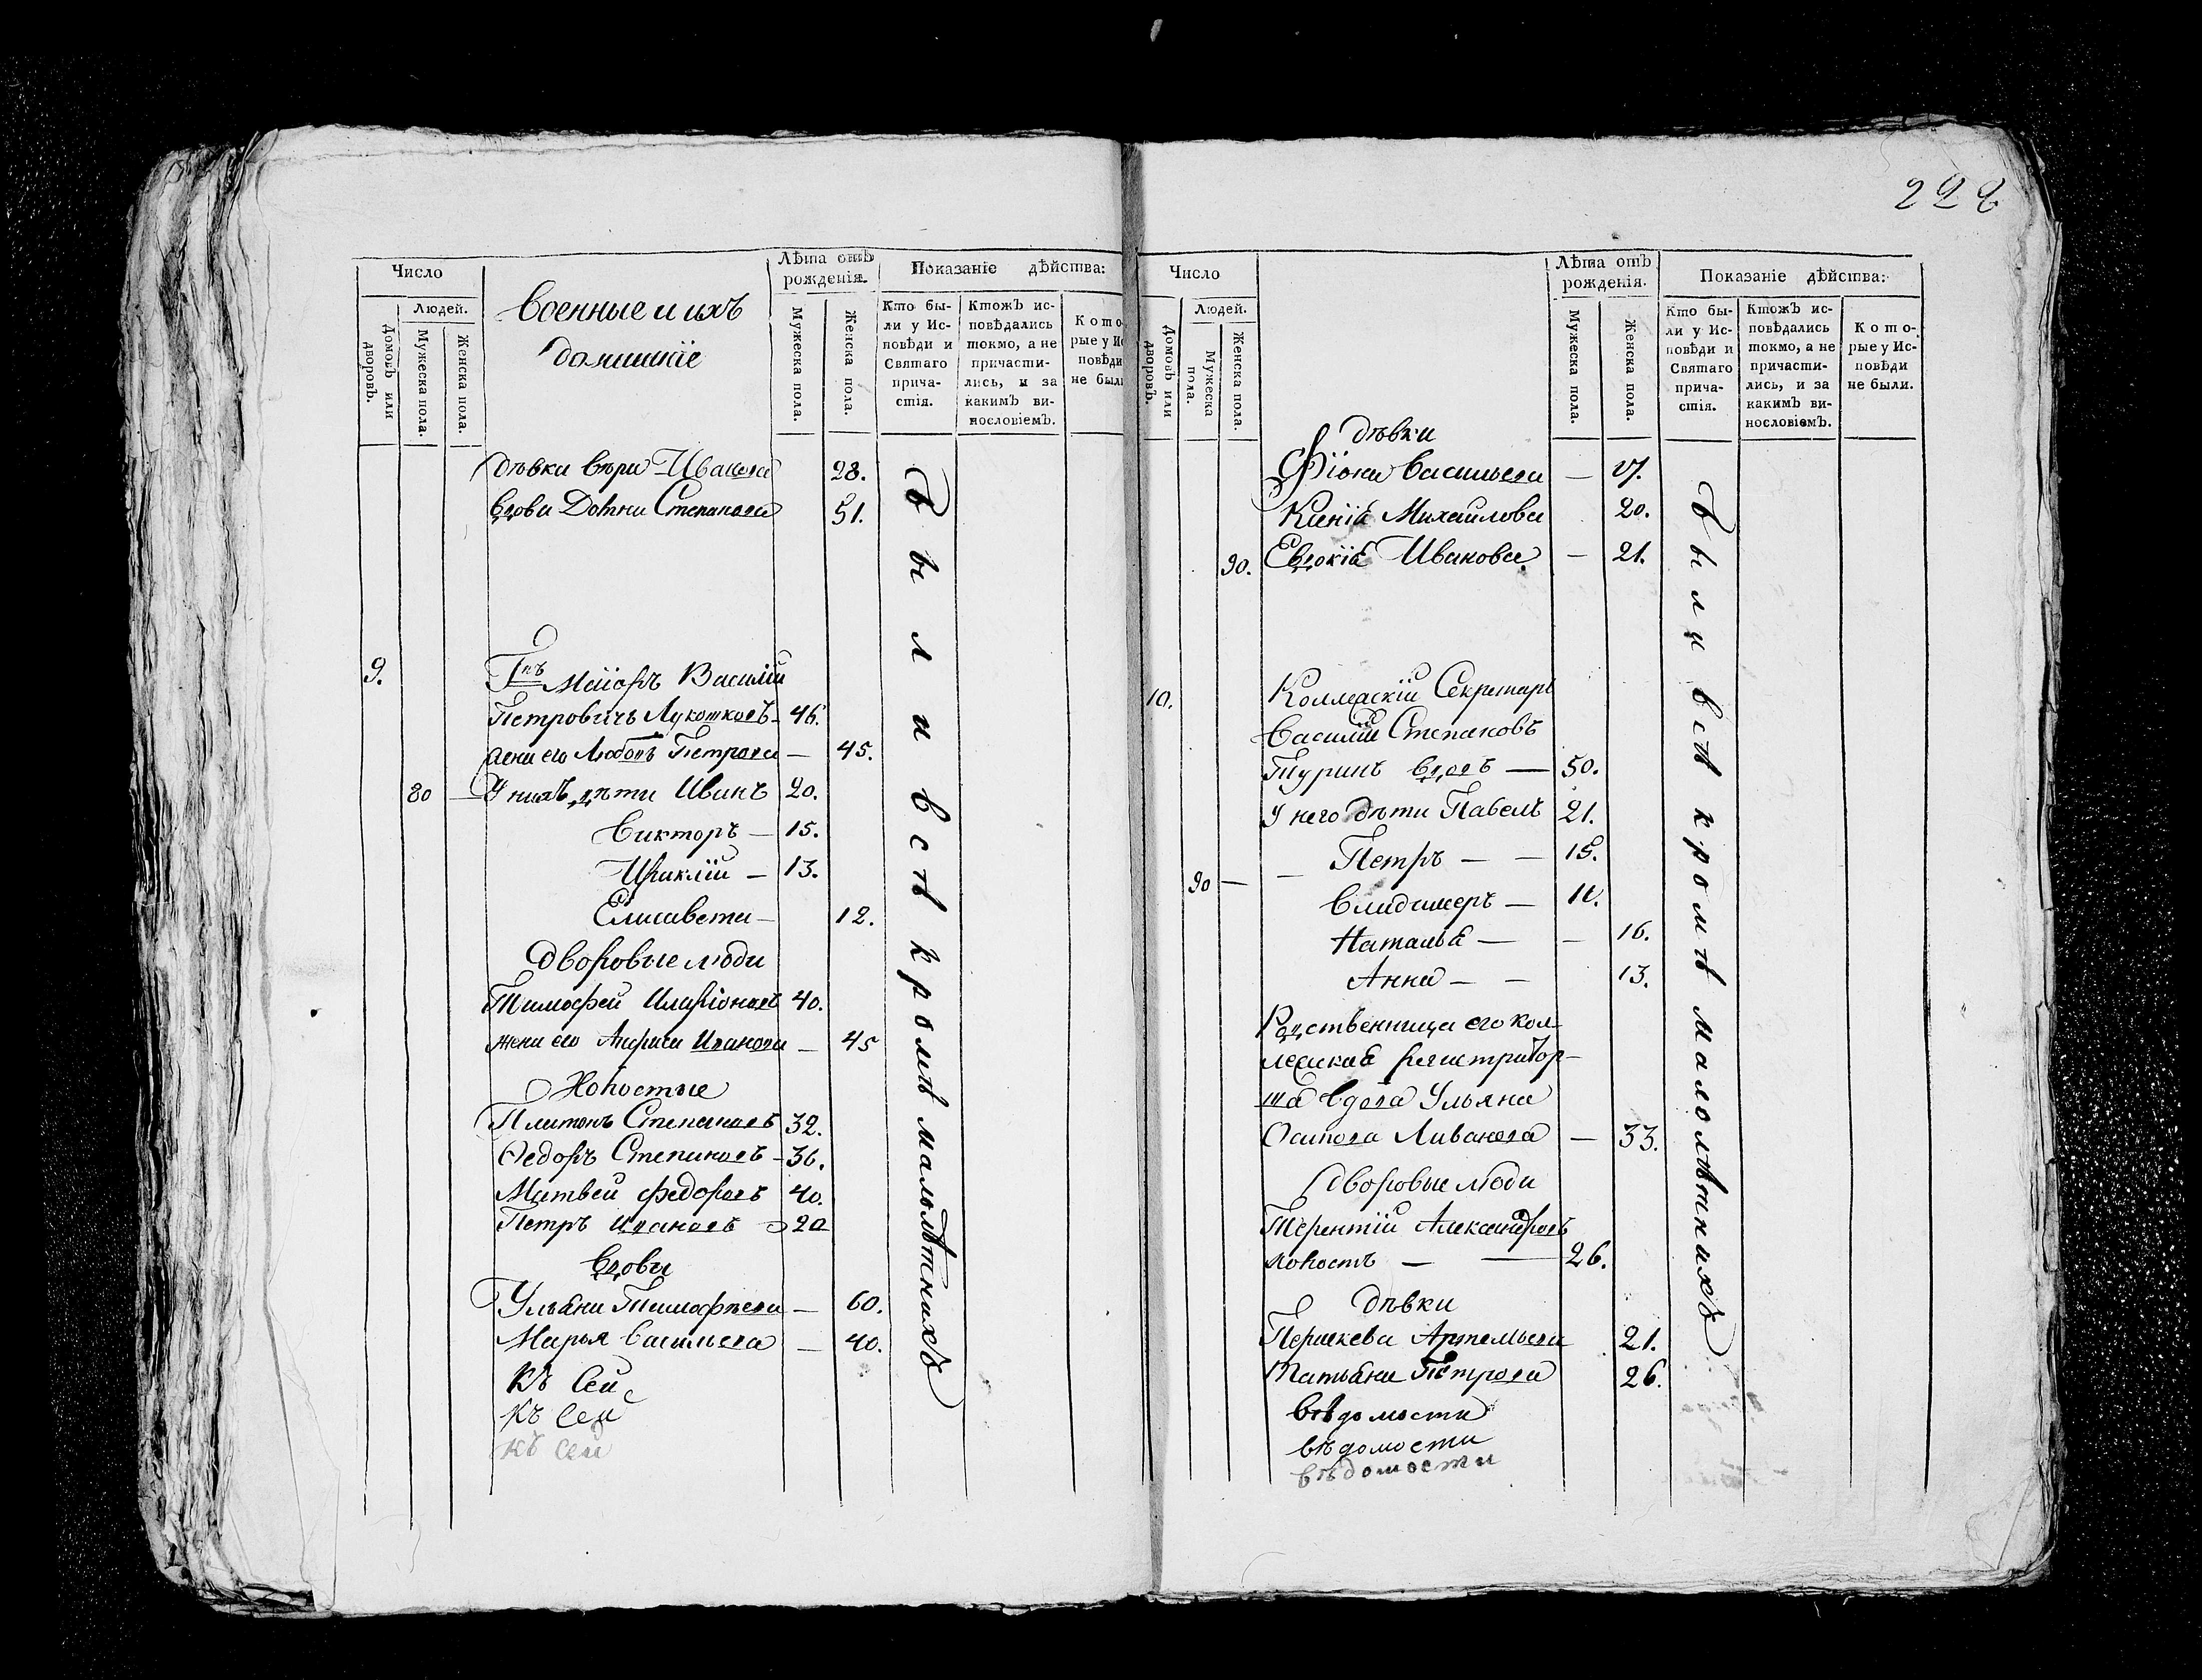 222
Число
Людей.
Домовъ или дворовъ.
Мужеска пола.
Женска пола.
Военные и ихъ
домашніе
Лѣта отъ
рожденія.
Мужеска пола.
Женска пола.
Показаніе дѣйства:
Кто бы-
ли у Ис-
повѣди и
Святаго
прича-
стія.
Ктожъ ис-
повѣдались
токмо, а не
причасти-
лись, и за
какимъ ви-
нословіемъ.
Кото
рые у Ис
повѣди
не были
дѣвки вѣра Иванова 28.
вдова Домна Степанова 51.
9. Гнъ Маіоръ Василій
Петровичъ Лукошковъ 46.
жена его Любовь Петрова — 45.
80 — У нихъ дѣти Иванъ 20.
Викторъ — 15.
Ираклій — 13.
Елисавета — 12.
Дворовые люди
Тимофей Иларіоновъ 40.
жена его Ивановa — 45
Холостые
Платонъ Степановъ 32.
Ѳедоръ Степановъ — 36.
Матвей федоровъ 40.
Петръ Ивановъ 20
Вдовы
Ульяна Тимофѣева — 60.
Марья Васильева — 40.
Къ Сей
Къ Сей
Къ Сей
Были всѣ кромѣ малолѣтнихъ
Число
Людей.
Домовъ или дворовъ.
Мужеска пола.
Женска пола.
Лѣта отъ
рожденія.
Мужеска пола.
Женска пола.
Показаніе дѣйства:
Кто бы-
ли у Ис-
повѣди и
Святаго
прича-
стія.
Ктожъ ис-
повѣдались
токмо, а не
причасти-
лись, и за
какимъ ви-
нословіемъ.
Кото-
рые у Ис-
повѣди
не были.
дѣвки
Фіона Васильева —
Ксенія Михайлова 20.
90. Евдокія Иванова — 21.
10. Коллежскій Секретарь
Василій Степановъ
Туринъ вдовъ — 50.
У него дѣти Павелъ 21.
Петръ — — 15.
90 — Владимеръ —
Наталья — — 16.
Анна — — 13.
Родственница его кол-
лежская регистратор-
ша вдова Ульяна
Осипова Ливанова — 33.
Дворовые люди
Терентій Александровъ
холостъ — — 26.
Дѣвки
Параскева Артемьева 21.
Татьяна Петрова 26.
вѣдомости
вѣдомости
вѣдомости
Были всѣ кромѣ малолѣтнихъ